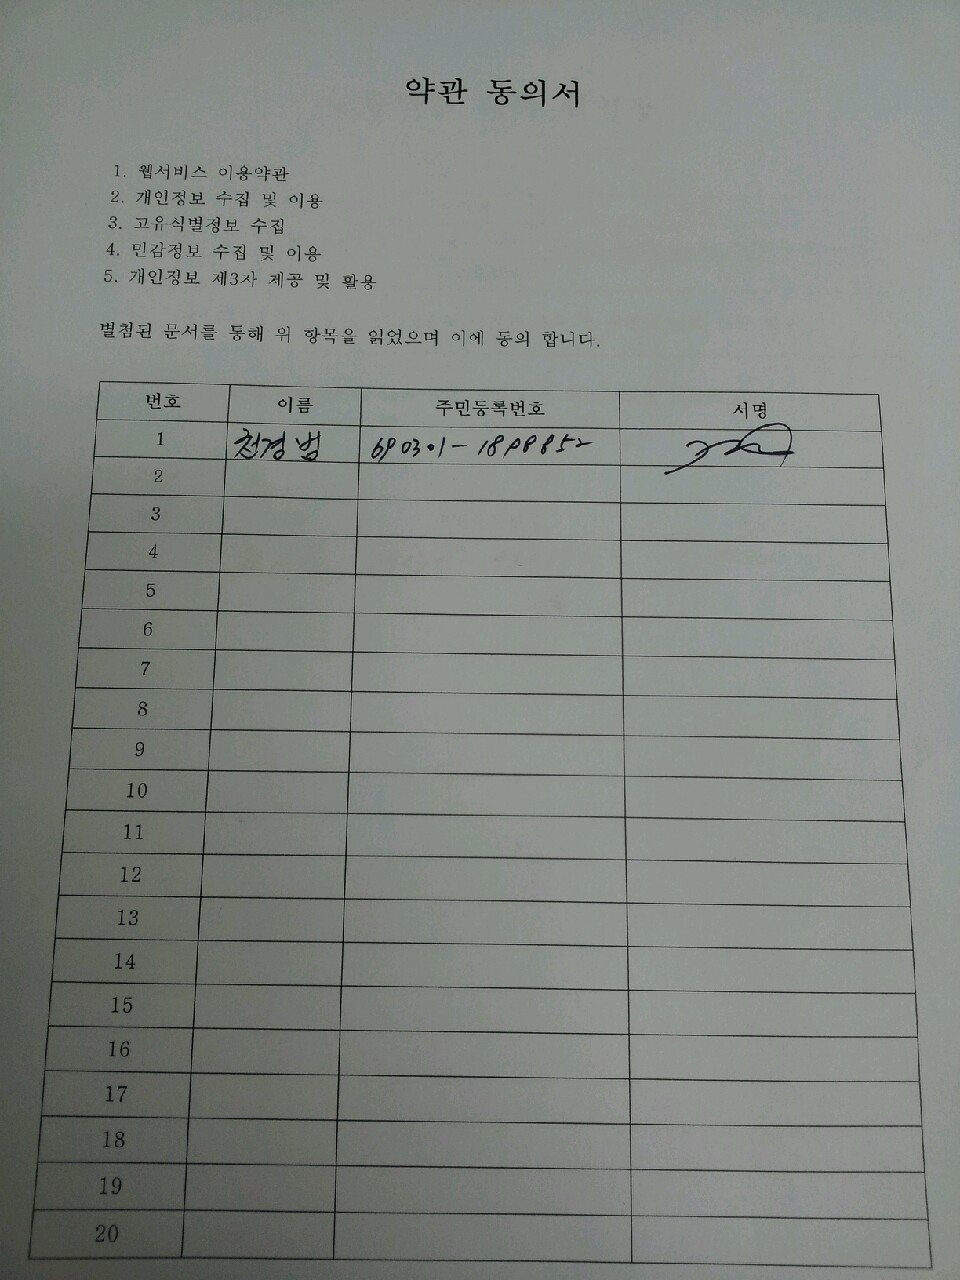 약관 동의서
1. 웹서비스 이용약관
2. 개인정보 수집 및 이용
3. 고유식별정보 수집
4. 민감정보 수집 및 이용
5. 개인정보 제3자 제공 및 활용
별첨된 문서를 통해 위 항목을 읽었으며 이에 동의 합니다.
번호 이름 주민등록번호 서명
1 천경범 690301-1898852
2
3
4
5
6
7
8
9
10
11
12
13
14
15
16
17
18
19
20